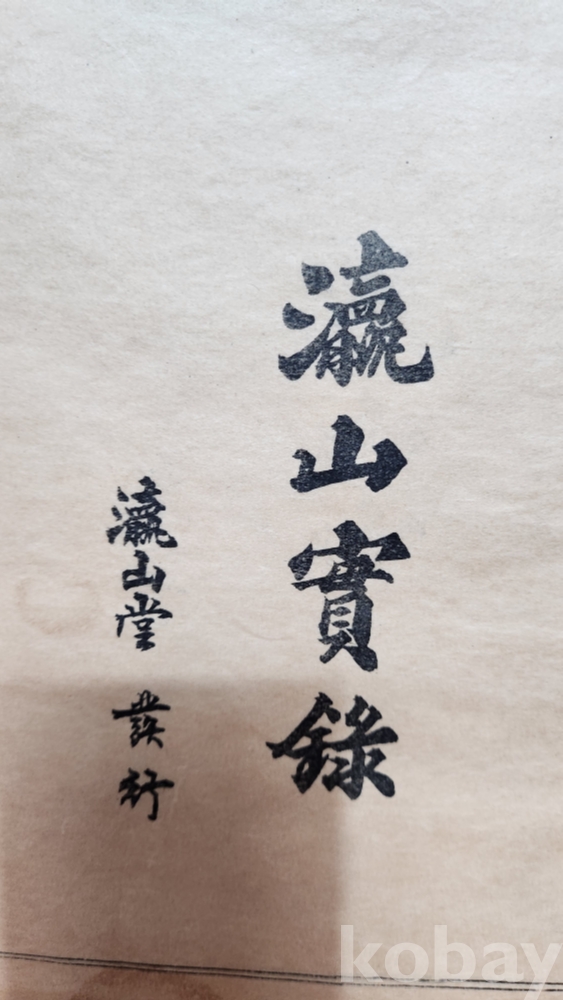 瀛山實錄
瀛山堂 發行
kobay